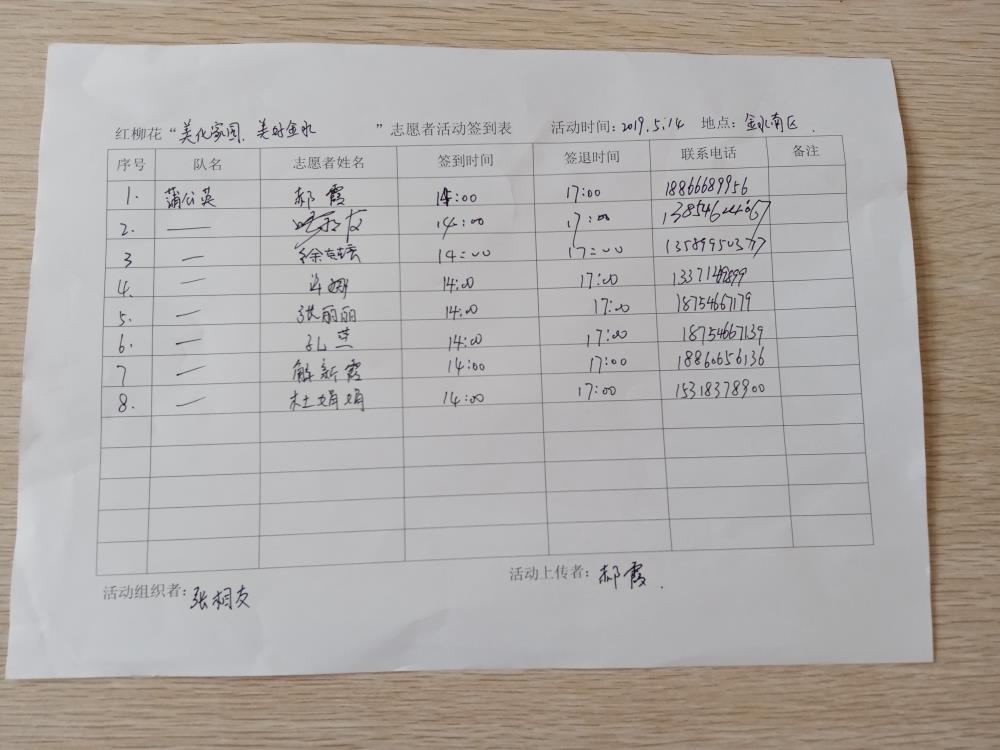 红柳花“美化家园、美好金水”志愿者活动签到表 活动时间：2019.5.14 地点：金水南区.
序号 队名 志愿者姓名 签到时间 签退时间 联系电话 备注
1. 蒲公英 郝霞 14:00 17:00 18866689956
2. —— 友 14:00 17:00
3 — 徐 14:00 17:00 13589950377
4. — 许娜 14:00 17:00
5. — 张丽丽 14:00 17:00 18754667179
6. — 孔燕 14:00 17:00 18754667139
7 — 解新霞 14:00 17:00 18860656136
8. — 杜娟娟 14:00 17:00 15318378900
活动组织者：张相友 活动上传者：郝霞.